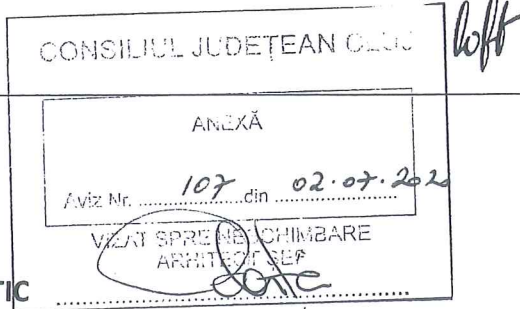 CONSILIUL JUDEȚEAN CLUJ
loft
ANEXĂ
Aviz Nr. 107 din 02.07.2020
VIZAT SPRE NESCHIMBARE
ARHITECT ȘEF
TIC